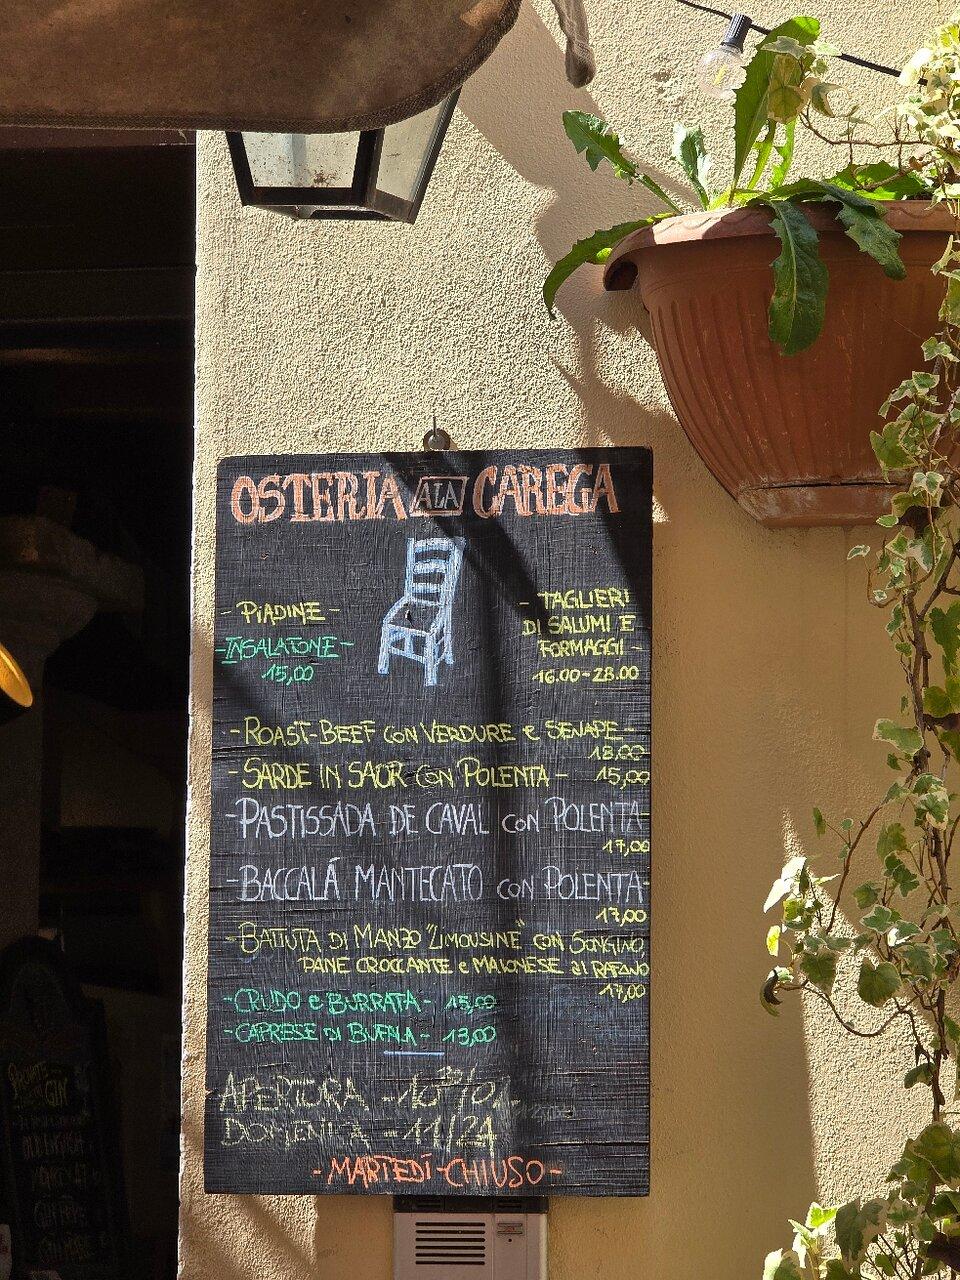 OSTERIA ALA CAREGA
- PiADINE -
- INSALATONE -
15,00
- TAGLIERI
DI SALUMI E
FORMAGGI -
16.00-28.00
- ROAST-BEEF CON VERDURE e SENAPE -
18,00
- SARDE IN SAOR CON POLENTA - 15,00
- PASTISSADA DE CAVAL con POLENTA -
17,00
- BACCALÁ MANTECATO con POLENTA -
17,00
- BATTUTA DI MANZO "LIMOUSINE" CON SONGINO,
PANE CROCCANTE e MAIONESE al RAFANO
17,00
- CRUDO e BURRATA - 15,00
- CAPRESE DI BUFALA - 13,00
APERTURA -10³⁰/01
DOMENICA -11/24
- MARTEDÍ-CHIUSO -
GIN